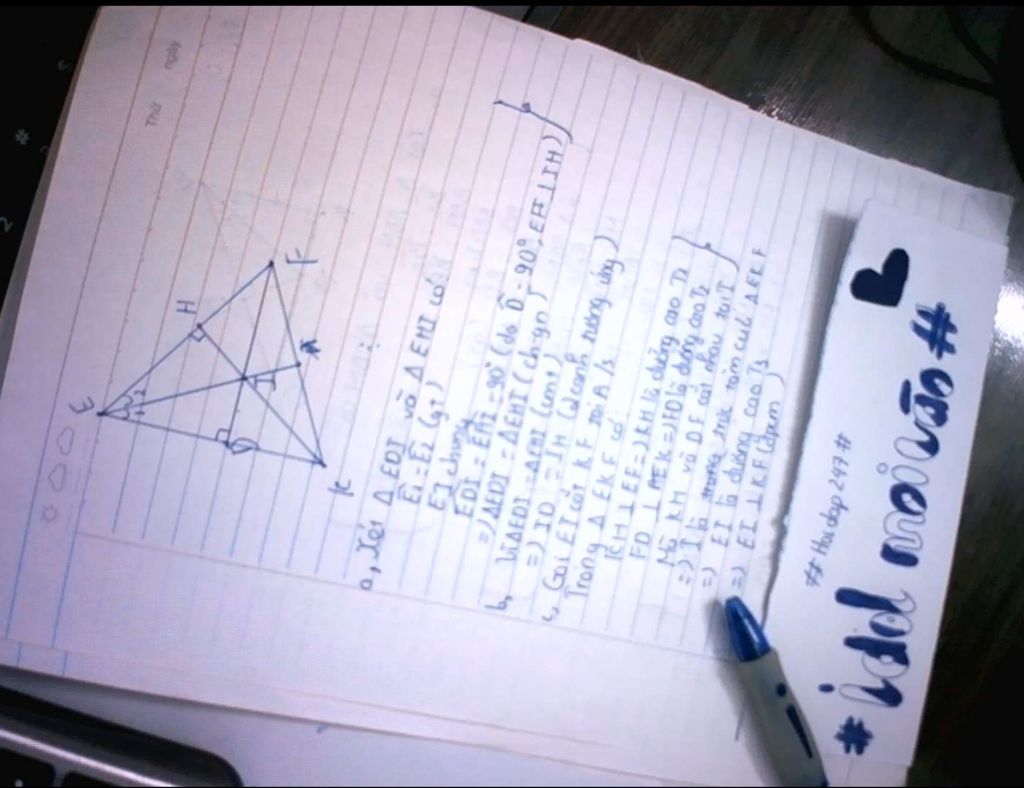 Thứ
ngày
E
1 2
H
F
I
D
A
K
a, Xét Δ EDI và Δ EHI có:
Ê₁ = Ê₂ (gt)
EI chung
EDI = EHI = 90° (do D̂ = 90°, EF ⊥ IH)
=) ΔEDI = ΔEHI (ch-gn)
b, Vì ΔEDI = ΔEHI (cmt)
=) ID = IH (2 cạnh tương ứng)
c, Gọi EI cắt KF tại A
Trong Δ EKF có
KH ⊥ EF =) KH là đường cao T1
FD ⊥ EK =) FD là đường cao T2
Mà KH và DF cắt nhau tại I
=) I là trực tâm của Δ EKF
=) EI là đường cao T3
=) EI ⊥ KF (đpcm)
## Hoidap247 #
# idol mới vào #